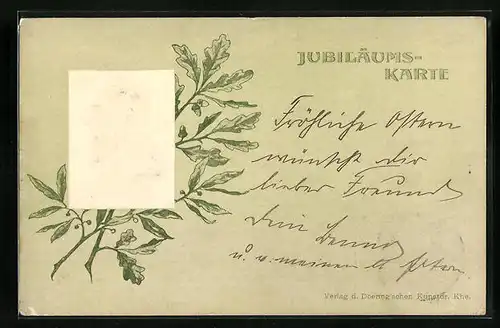 JUBILÄUMS-
KARTE
Fröhliche Ostern
wünscht dir
lieber Freund
Dein
u. v. meinen
Verlag d. Doering'schen Künstdr. Khe.